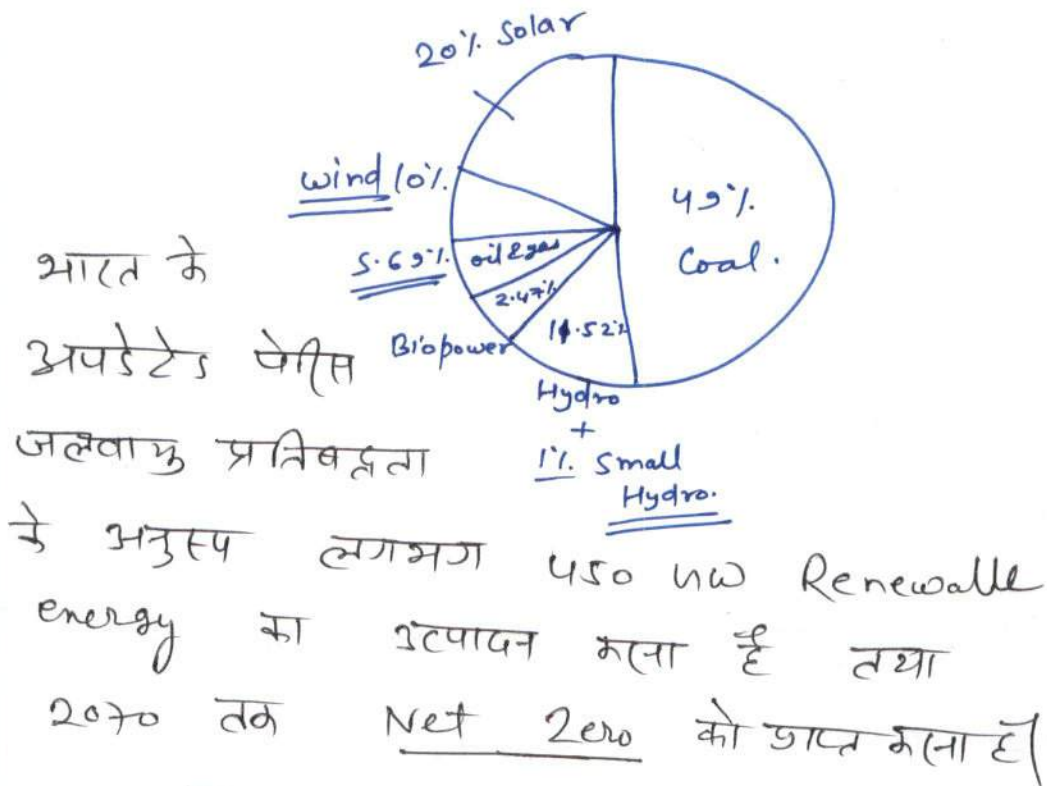 20% Solar
wind 10%
49%
Coal.
5.69% oil & gas
2.47%
Biopower
11.52%
Hydro
+
1% Small
Hydro.
भारत के
अपडेटेड पेरिस
जलवायु प्रतिबद्धता
के अनुरूप लगभग 450 GW Renewable
energy का उत्पादन करना है तथा
2070 तक Net Zero को प्राप्त करना है।